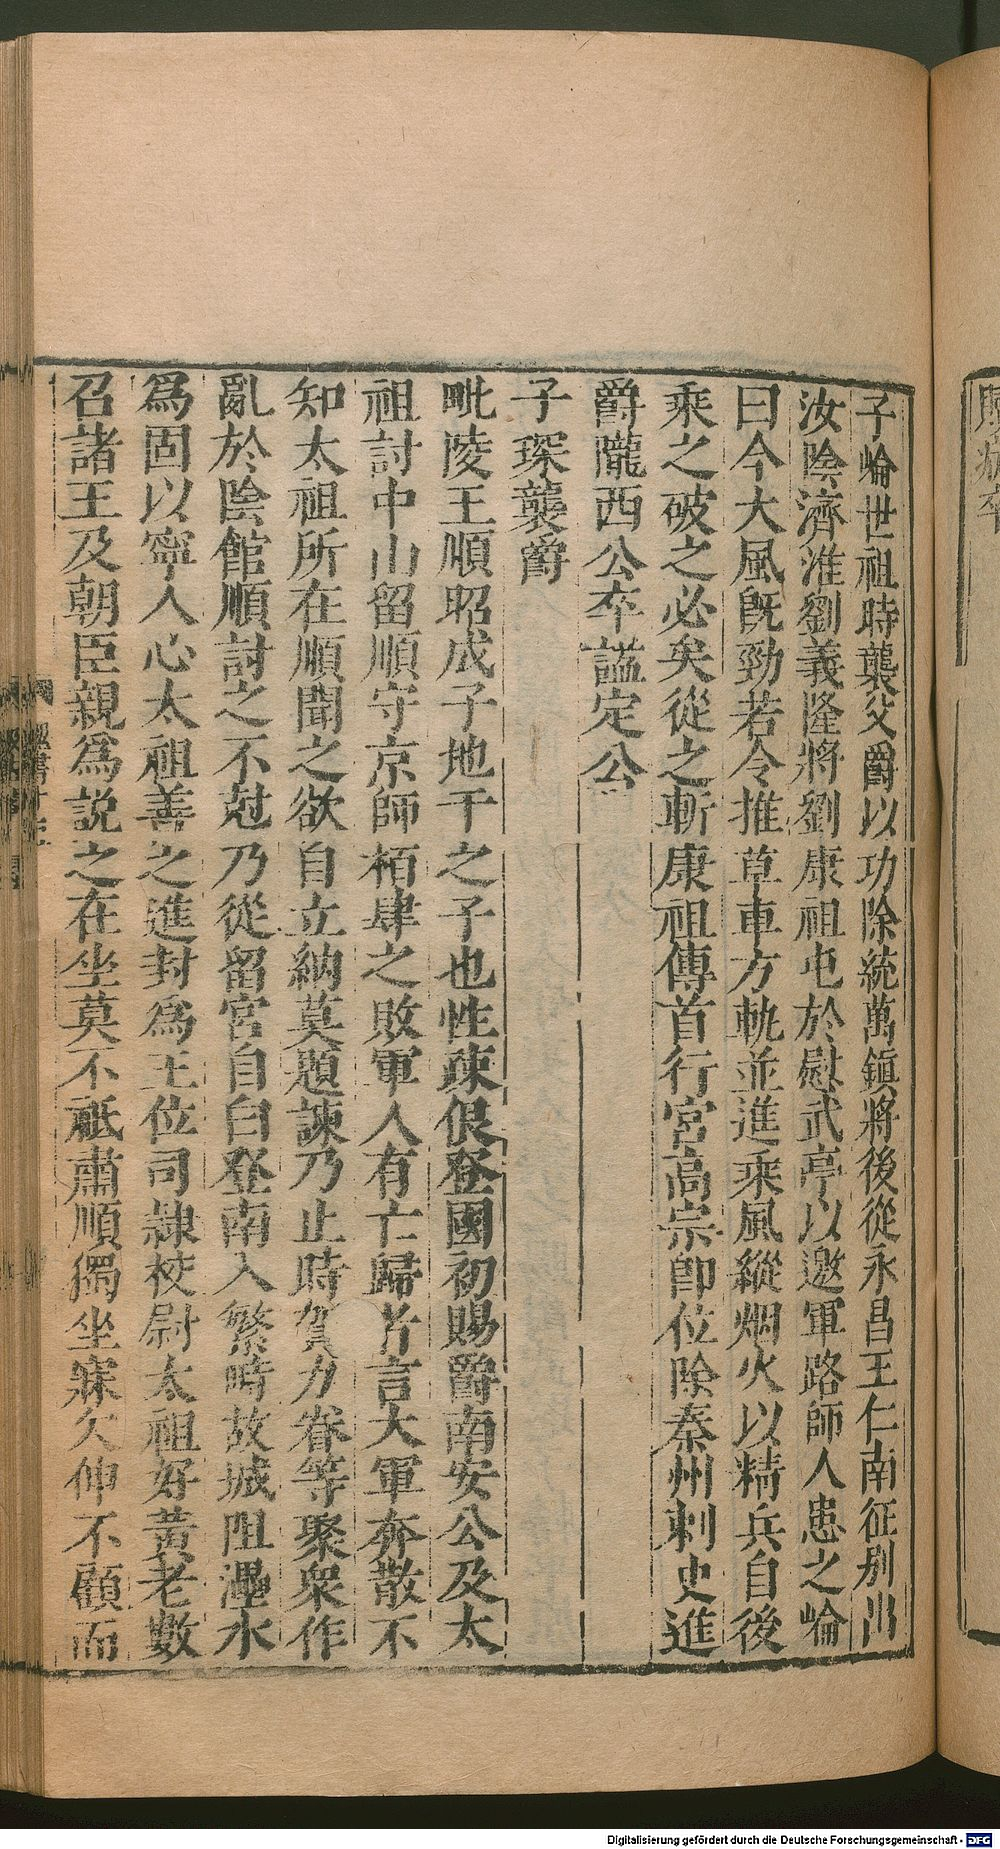 子崘世祖時襲父爵以功除統萬鎮將後從永昌王仁南征別出
汝陰濟淮劉義隆將劉康祖屯於慰武亭以邀軍路師人患之崘
曰今大風旣勁若令推草車方軌並進乘風縱烟火以精兵自後
乘之破之必矣從之斬康祖傳首行宮高宗卽位除秦州刺史進
爵隴西公卒謚定公
子琛襲爵
毗陵王順昭成子地干之子也性疎佷登國初賜爵南安公及太
祖討中山留順守京師栢肆之敗軍人有亡歸者言大軍奔散不
知太祖所在順聞之欲自立納莫題諫乃止時賀力眷等聚衆作
亂於陰館順討之不尅乃從留宮自白登南入繁畤故城阻灅水
爲固以寧人心太祖善之進封爲王位司隷校尉太祖好黃老數
召諸王及朝臣親爲説之在坐莫不祇肅順獨坐寐欠伸不顧而
Digitalisierung gefördert durch die Deutsche Forschungsgemeinschaft - DFG